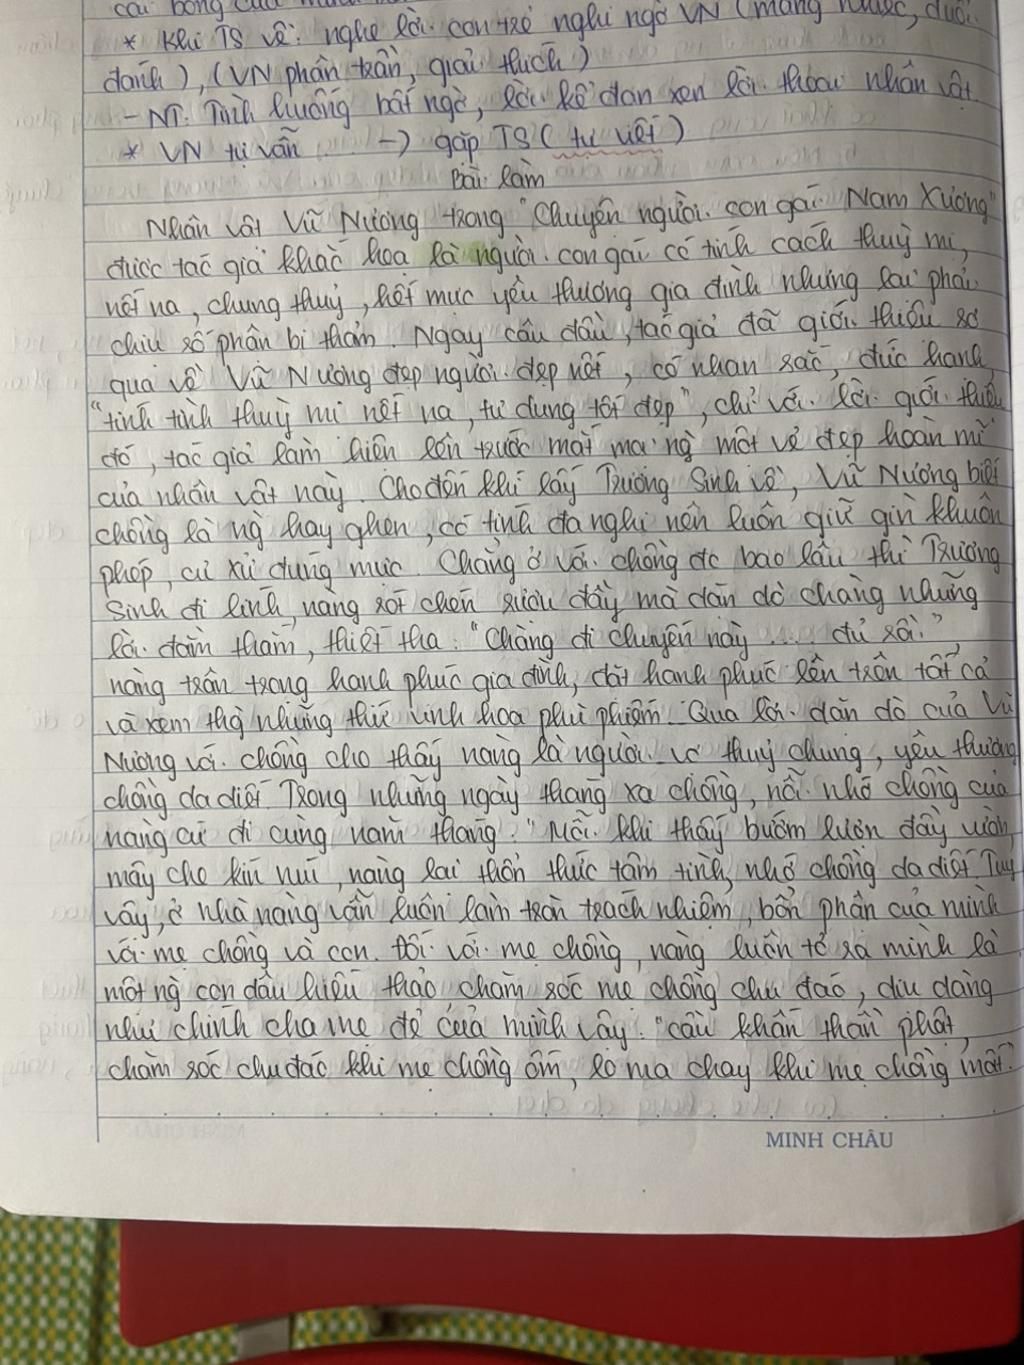 cái bóng của
* Khi TS về: nghe lời con trẻ nghi ngờ VN (mắng nhiếc, đuổi
đánh), (VN phân trần, giải thích)
- NT: Tình huống bất ngờ, lời kể đan xen lời thoại nhân vật
* VN tự vẫn -) gặp TS (tự viết)
Bài làm
Nhân vật Vũ Nương trong "Chuyện người con gái Nam Xương"
được tác giả khắc họa là người con gái có tính cách thuỳ mị,
nết na, chung thuỷ, hết mực yêu thương gia đình nhưng lại phải
chịu số phận bi thảm. Ngay câu đầu, tác giả đã giới thiệu sơ
qua về Vũ Nương đẹp người đẹp nết, có nhan sắc, đức hạnh
"tính tình thuỳ mị nết na, tư dung tốt đẹp", chỉ với lời giới thiệu
đó, tác giả làm hiện lên trước mắt mọi ng một vẻ đẹp hoàn mĩ
của nhân vật này. Cho đến khi lấy Trương Sinh về, Vũ Nương biết
chồng là ng hay ghen, có tính đa nghi nên luôn giữ gìn khuôn
phép, cư xử đúng mực. Chẳng ở với chồng đc bao lâu thì Trương
Sinh đi lính, nàng rót chén rượu đầy mà dặn dò chàng những
lời đằm thắm, thiết tha: "Chàng đi chuyến này ... đủ rồi."
nàng trân trọng hạnh phúc gia đình, đặt hạnh phúc lên trên tất cả
và xem thg những thứ vinh hoa phù phiếm. Qua lời dặn dò của Vũ
Nương với chồng cho thấy nàng là người vợ thuỷ chung, yêu thương
chồng da diết. Trong những ngày tháng xa chồng, nỗi nhớ chồng của
nàng cứ đi cùng năm tháng: "Mỗi khi thấy bướm lượn đầy vườn,
mây che kín núi, nàng lại thổn thức tâm tình, nhớ chồng da diết. Tuy
vậy, ở nhà nàng vẫn luôn làm tròn trách nhiệm, bổn phận của mình
với mẹ chồng và con. Đối với mẹ chồng, nàng luôn tỏ ra mình là
một ng con dâu hiếu thảo, chăm sóc mẹ chồng chu đáo, dịu dàng
như chính cha mẹ đẻ của mình vậy: "cầu khấn thần phật,
chăm sóc chu đáo khi mẹ chồng ốm, lo ma chay khi mẹ chồng mất."
MINH CHÂU